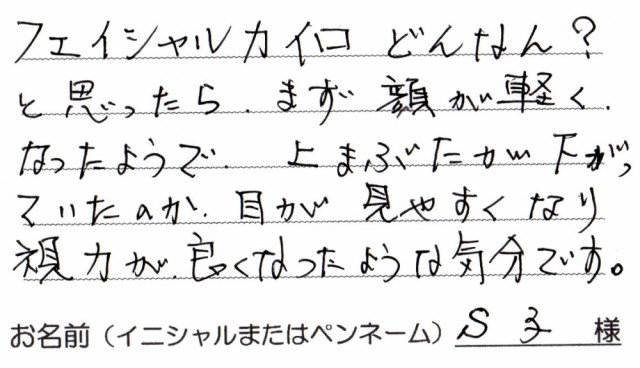 フェイシャルカイロ どんなん?
と思ったら、まず顔が軽く、
なったようで、上まぶたが下がっ
ていたのが、目が見やすくなり
視力が、良くなったような気分です。
お名前(イニシャルまたはペンネーム) S子 様